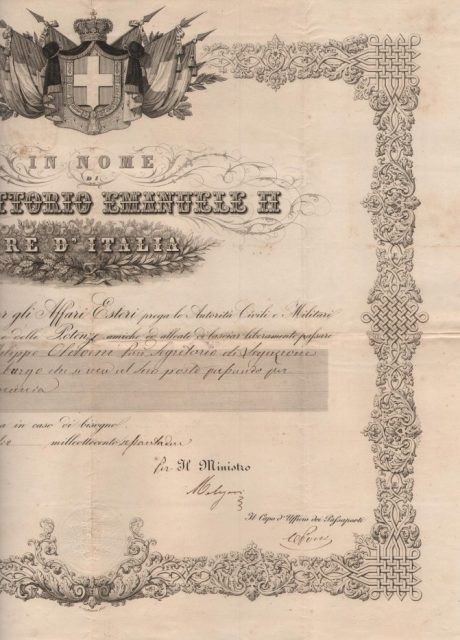 IN NOME
DI
TTORIO EMANUELE II
RE D'ITALIA
er gli Affari Esteri prega le Autorità Civili e Militari
e delle Potenze amiche ed alleate di lasciar liberamente passare
Segretario di Legazione
burgo che si reca al suo posto passando per
mania
a in caso di bisogno.
millottocento
Per Il Ministro
Il Capo d'Ufficio dei Passaporti